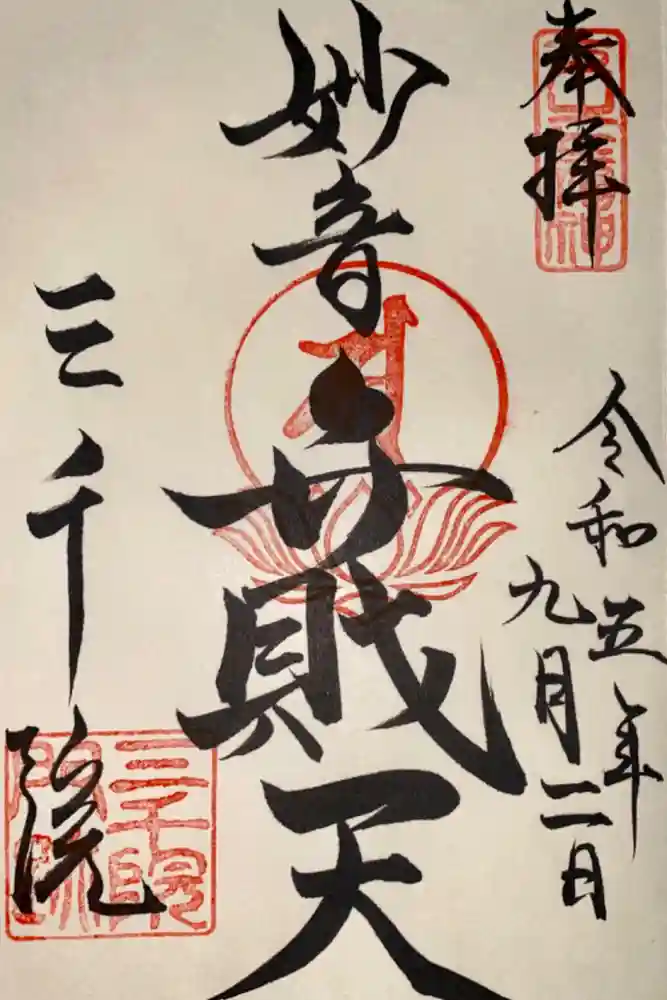 奉拝
令和五年
九月二日
妙音弁財天
三千院
三千院